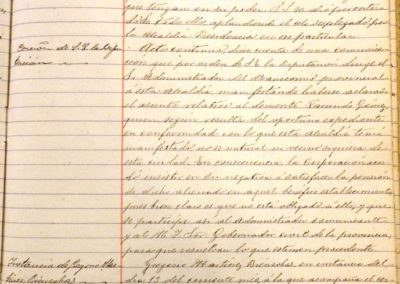 que tengan en su poder S. S. no dia por entera-
da de todo ello, aplaudiendo el celo desplegado por
la Alcaldia Presidencia en ese particular.
Acto continuo dióse cuenta de una comunicacion
que por orden de la Diputacion dirige el
Sr. Administrador del Manicomio provincial
á esta Alcaldia manifestando haberse aclarado
el asunto relativo al demente Facundo
quien segun resulta del oportuno expediente
en conformidad con lo que esta Alcaldia tenia
manifestado no es natural ni vecino siquiera de
esta ciudad. En consecuencia la Corporacion acor-
dó insistir en su negativa á satisfacer la pension
de dicho alienado en aquel benéfico establecimiento,
pues bien claro es que no está obligada á ello; y que
se participe asi al Administrador comunicante
y al M. I. Sr. Gobernador civil de la provincia,
para que resuelvan lo que estimen procedente.
Instancia de Gregorio Mar-
Gregorio Martinez en instancia del
dia 13 del corriente mes, á la que acompaña el cer-